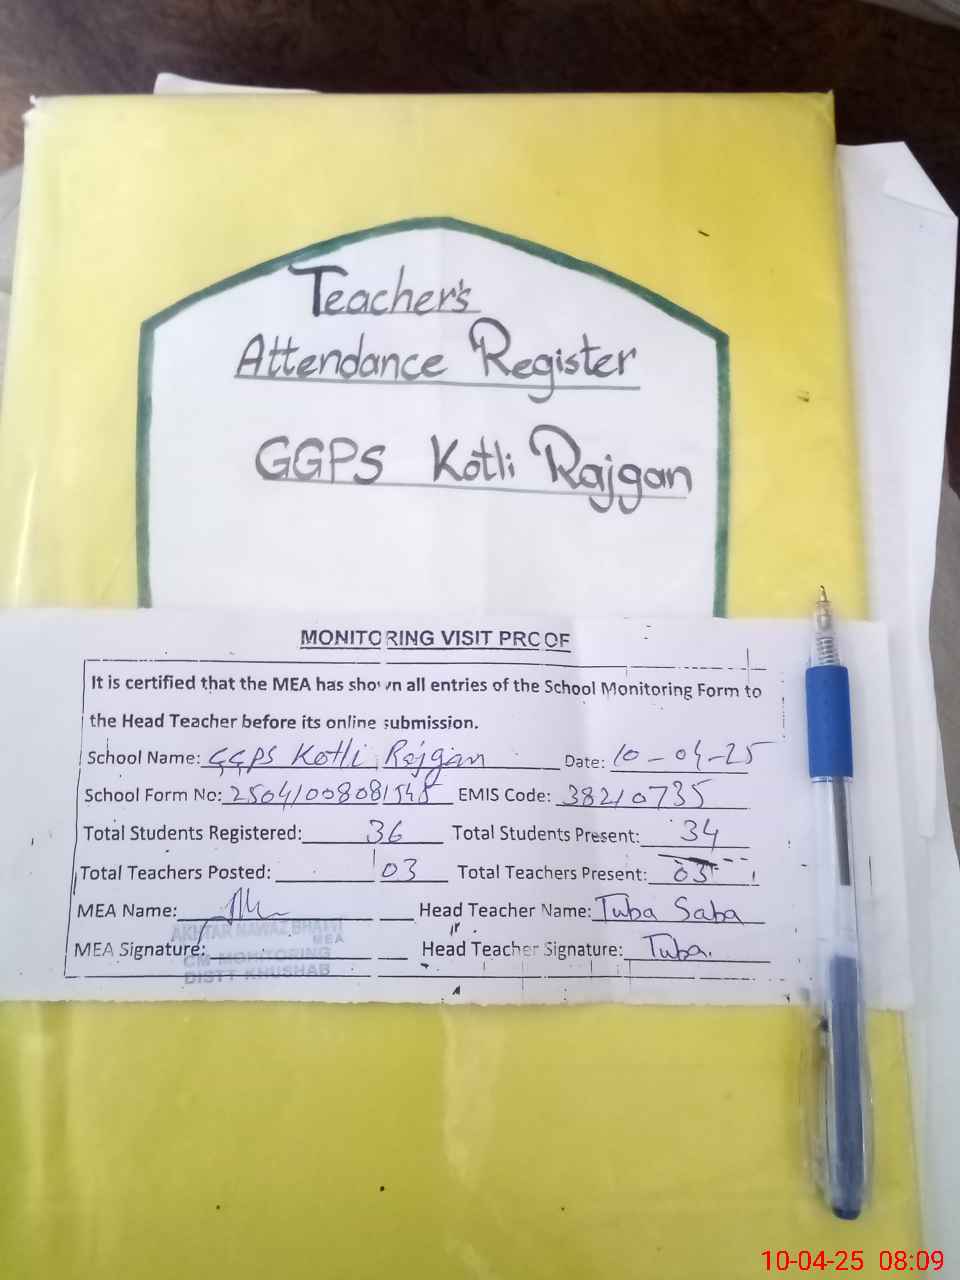 Teacher's
Attendance Register
GGPS Kotli Rajgan
MONITORING VISIT PROOF
It is certified that the MEA has shown all entries of the School Monitoring Form to
the Head Teacher before its online submission.
School Name: GGPS Kotli Rajgan Date: 10-04-25
School Form No: 25041008081545 EMIS Code: 38210735
Total Students Registered: 36 Total Students Present: 34
Total Teachers Posted: 03 Total Teachers Present: 03
MEA Name: Head Teacher Name: Tuba Saba
AKHTAR NAWAZ BHATTI
MEA
MEA Signature: Head Teacher Signature: Tuba.
CM MONITORING
DISTT KHUSHAB
10-04-25 08:09